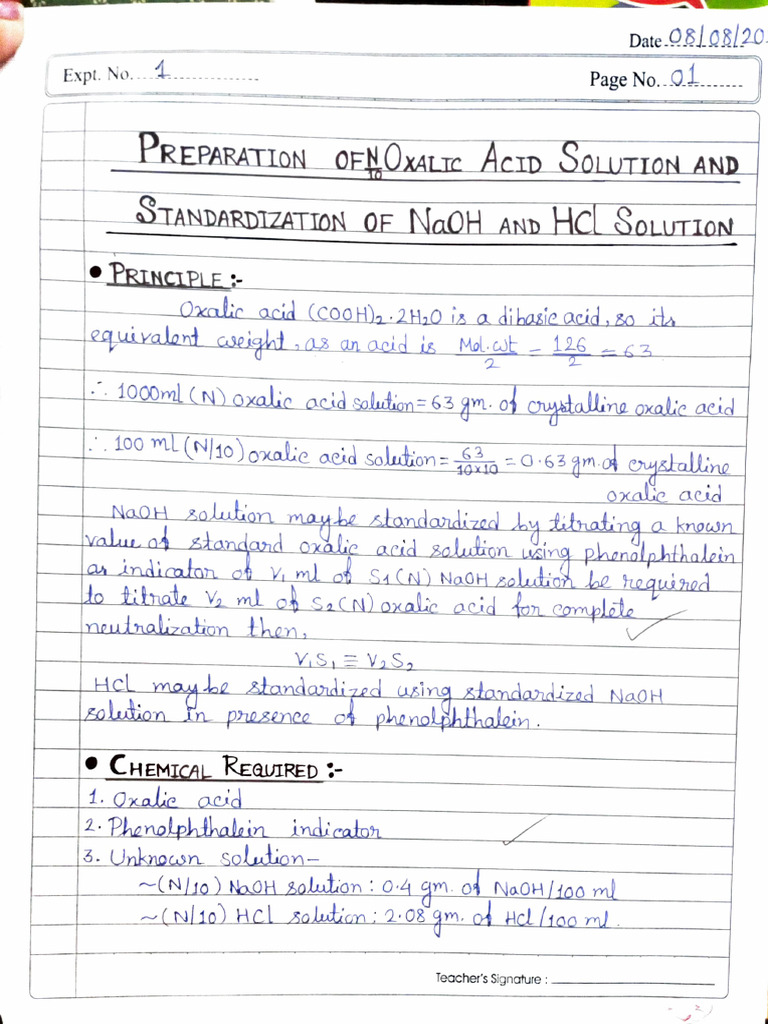 Date 08/08/20
Expt. No. 1
Page No. 01
PREPARATION OF N/10 OXALIC ACID SOLUTION AND
STANDARDIZATION OF NaOH AND HCl SOLUTION
• PRINCIPLE :-
Oxalic acid (COOH)2·2H2O is a dibasic acid, so its
equivalent weight, as an acid is Mol.wt/2 = 126/2 = 63
∴ 1000ml (N) oxalic acid solution = 63 gm. of crystalline oxalic acid
∴ 100 ml (N/10) oxalic acid solution = 63/10×10 = 0.63 gm. of crystalline
oxalic acid
NaOH solution may be standardized by titrating a known
value of standard oxalic acid solution using phenolphthalein
as indicator of V1 ml of S1 (N) NaOH solution be required
to titrate V2 ml of S2 (N) oxalic acid for complete
neutralization then,
V1S1 ≡ V2S2
HCl may be standardized using standardized NaOH
solution in presence of phenolphthalein.
• CHEMICAL REQUIRED :-
1. Oxalic acid
2. Phenolphthalein indicator
3. Unknown solution–
~(N/10) NaOH solution : 0.4 gm. of NaOH/100 ml
~(N/10) HCl solution : 2.08 gm. of HCl/100 ml.
Teacher's Signature :